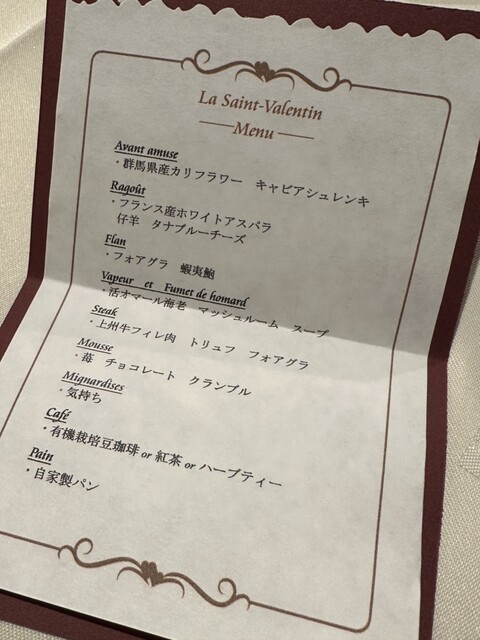 La Saint-Valentin
Menu
Avant amuse
・群馬県産カリフラワー キャビアシュレンキ
Ragoût
・フランス産ホワイトアスパラ
仔羊 タナブルーチーズ
Flan
・フォアグラ 蝦夷鮑
Vapeur et Fumet de homard
・活オマール海老 マッシュルーム スープ
Steak
・上州牛フィレ肉 トリュフ フォアグラ
Mousse
・苺 チョコレート クランブル
Mignardises
・気持ち
Café
・有機栽培豆珈琲 or 紅茶 or ハーブティー
Pain
・自家製パン